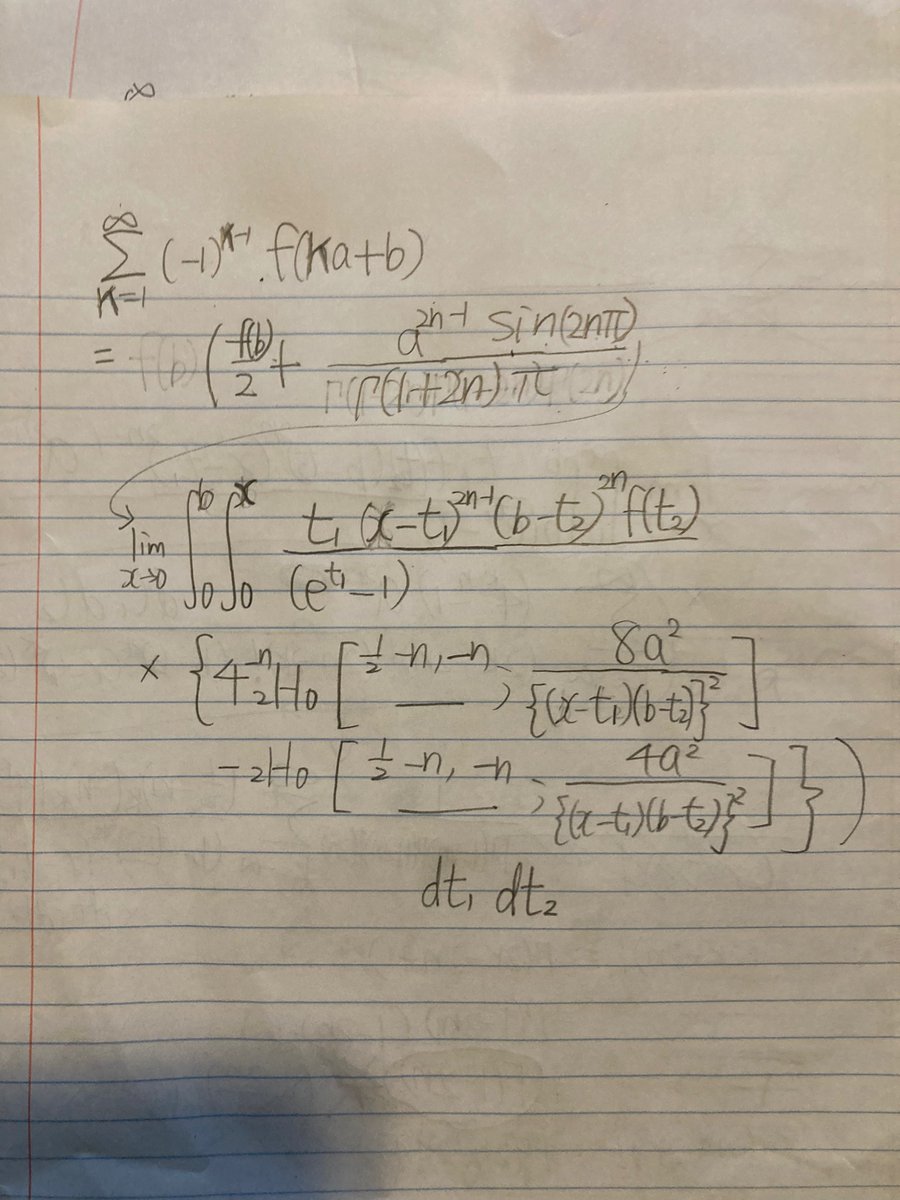 ∞
∑_{K=1}^{∞} (-1)^{K-1} . f(Ka+b)
= ( f(b)/2 + a^{2n-1} sin(2nπ) / Γ(1+2n) π
lim_{x→0} ∫_0^b ∫_0^x t₁ (x-t₁)^{2n-1} (b-t₂)^{2n} f(t₂) / (e^{t₁}-1)
× { 4^{-n} ₂H₀ [ 1/2 -n, -n ; 8a² / {(x-t₁)(b-t₂)}² ]
- ₂H₀ [ 1/2 -n, -n ; 4a² / {(x-t₁)(b-t₂)}² ] } )
dt₁ dt₂